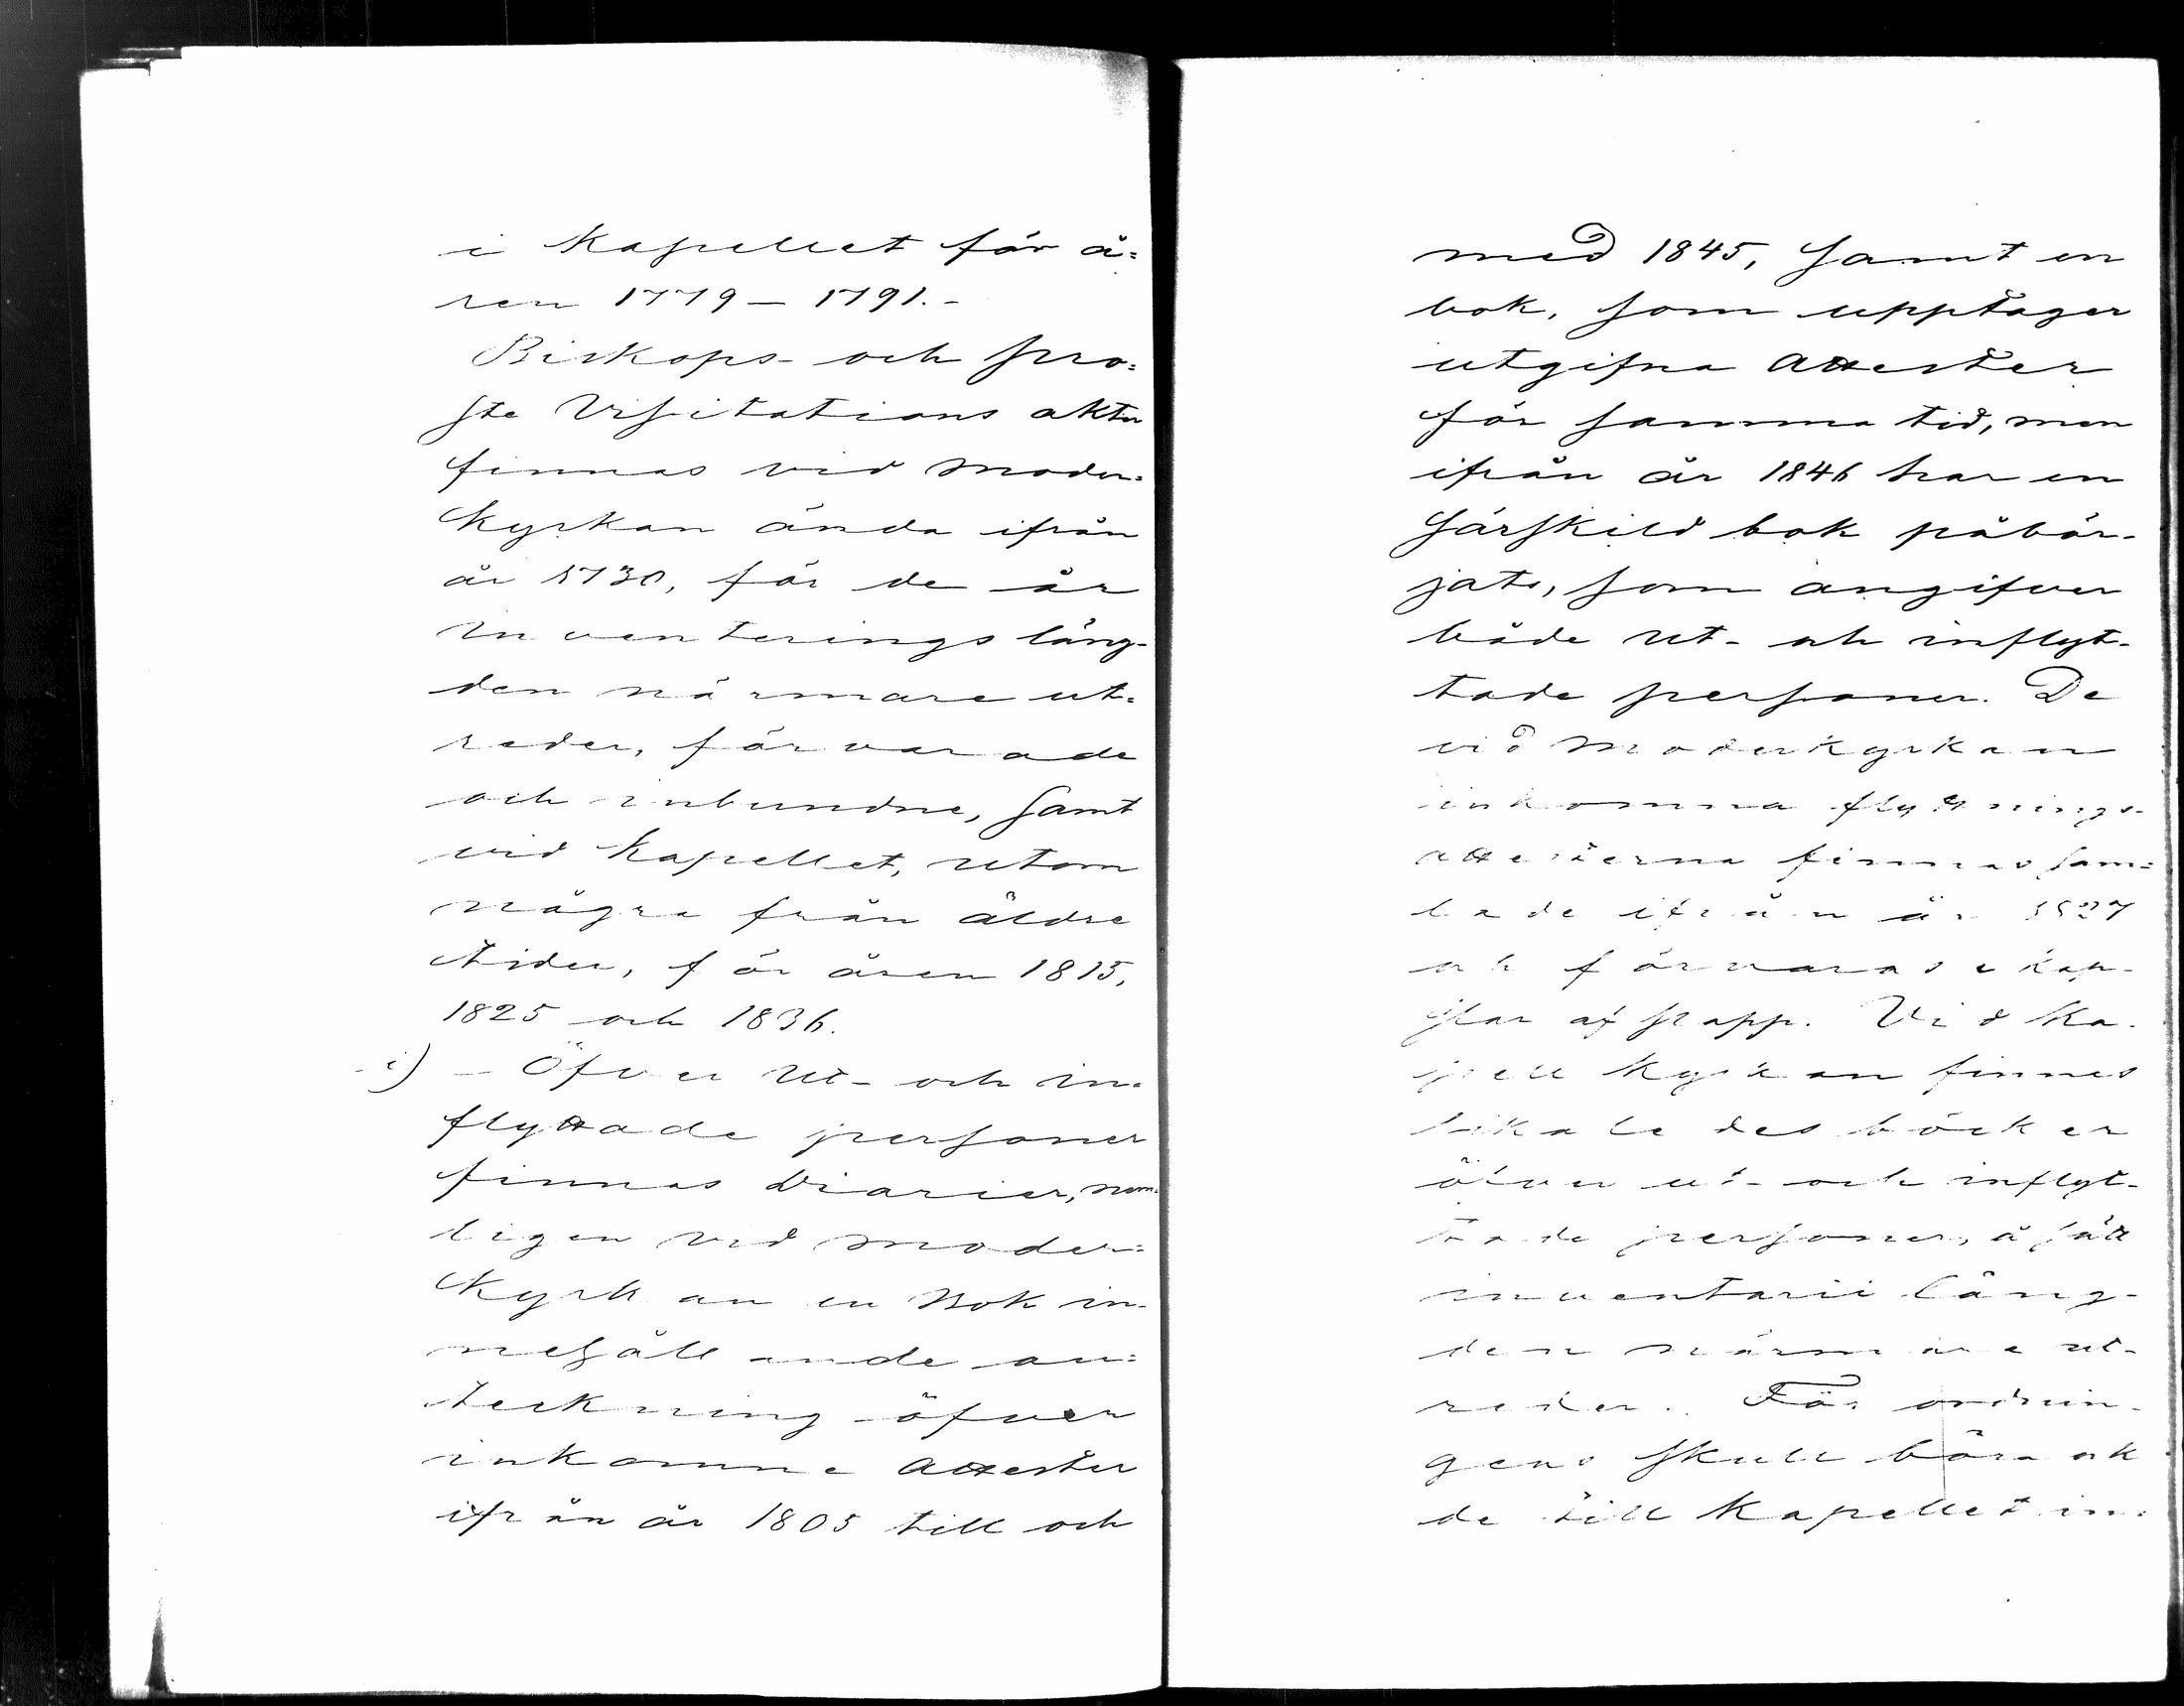 i Kapellet för å=
ren 1779 – 1791. -
Biskops- och pro=
ste Visitations akter
finnas vid moder=
kyrkan ända ifrån
år 1730, för de år
inventerings läng-
den närmare ut=
reder, förvarade
och inbundne, samt
vid Kapellet, utom
några från äldre
tider, för åren 1815,
1825 och 1836.
i) – Öfver Ut- och in=
flyttade personer
finnas Diarier, nem=
ligen vid moder=
kyrkan en Bok in-
nehållande an=
teckning öfver
inkomne attester
ifrån år 1805 till och
med 1845, samt en
bok, som upptager
utgifna attester
för samma tid, men
ifrån år 1846 har en
särskild bok påbör-
jats, som angifver
både ut- och inflyt-
tade personer. De
vid moderkyrkan
inkomna flyttnings-
attesterna finnas sam=
lade ifrån år 1827
och förvaras i kap-
slar af papp. Vid Ka-
pellkyrkan finnes
likaledes böcker
öfver ut- och inflyt-
tade personer, å sätt
inventarii läng-
den närmare ut-
reder. För ordnin-
gens skull böra ock
de till Kapellet in=